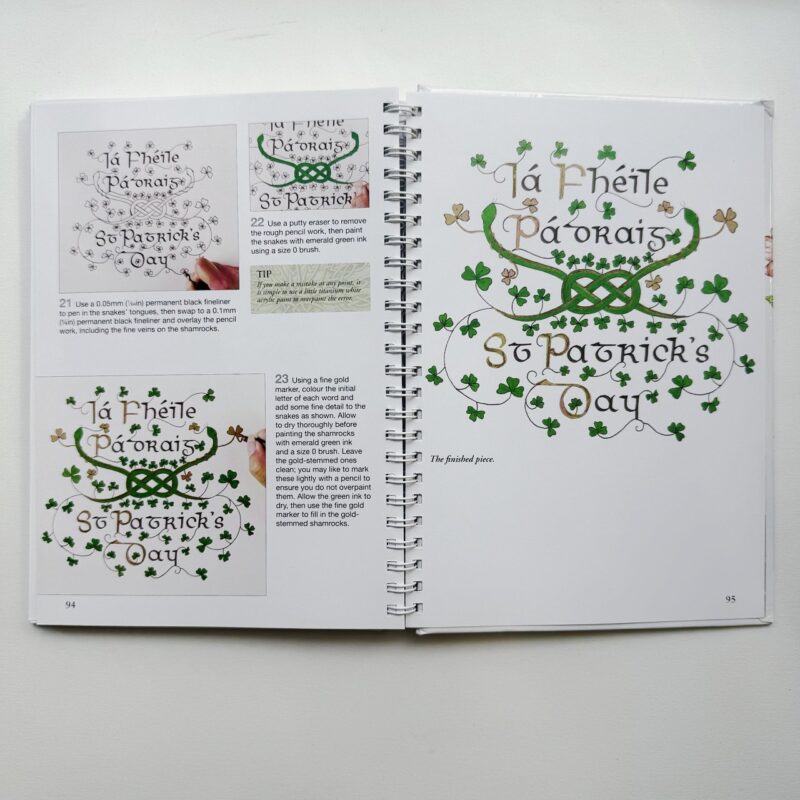 Lá Fhéile
Pádraig
St Patrick's
Day
21 Use a 0.05mm permanent black fineliner
to pen in the snakes' tongues, then swap to a 0.1mm
permanent black fineliner and overlay the pencil
work, including the fine veins on the shamrocks.
Lá Fhéile
Pádraig
St Patrick'
22 Use a putty eraser to remove
the rough pencil work, then paint
the snakes with emerald green ink
using a size 0 brush.
TIP
If you make a mistake at any point, it
is simple to use a little titanium white
acrylic paint to overpaint the error.
Lá Fhéile
Pádraig
St Patrick's
Day
23 Using a fine gold
marker, colour the initial
letter of each word and
add some fine detail to the
snakes as shown. Allow
to dry thoroughly before
painting the shamrocks
with emerald green ink
and a size 0 brush. Leave
the gold-stemmed ones
clean; you may like to mark
these lightly with a pencil to
ensure you do not overpaint
them. Allow the green ink to
dry, then use the fine gold
marker to fill in the gold-
stemmed shamrocks.
94
Lá Fhéile
Pádraig
St Patrick's
Day
The finished piece.
95